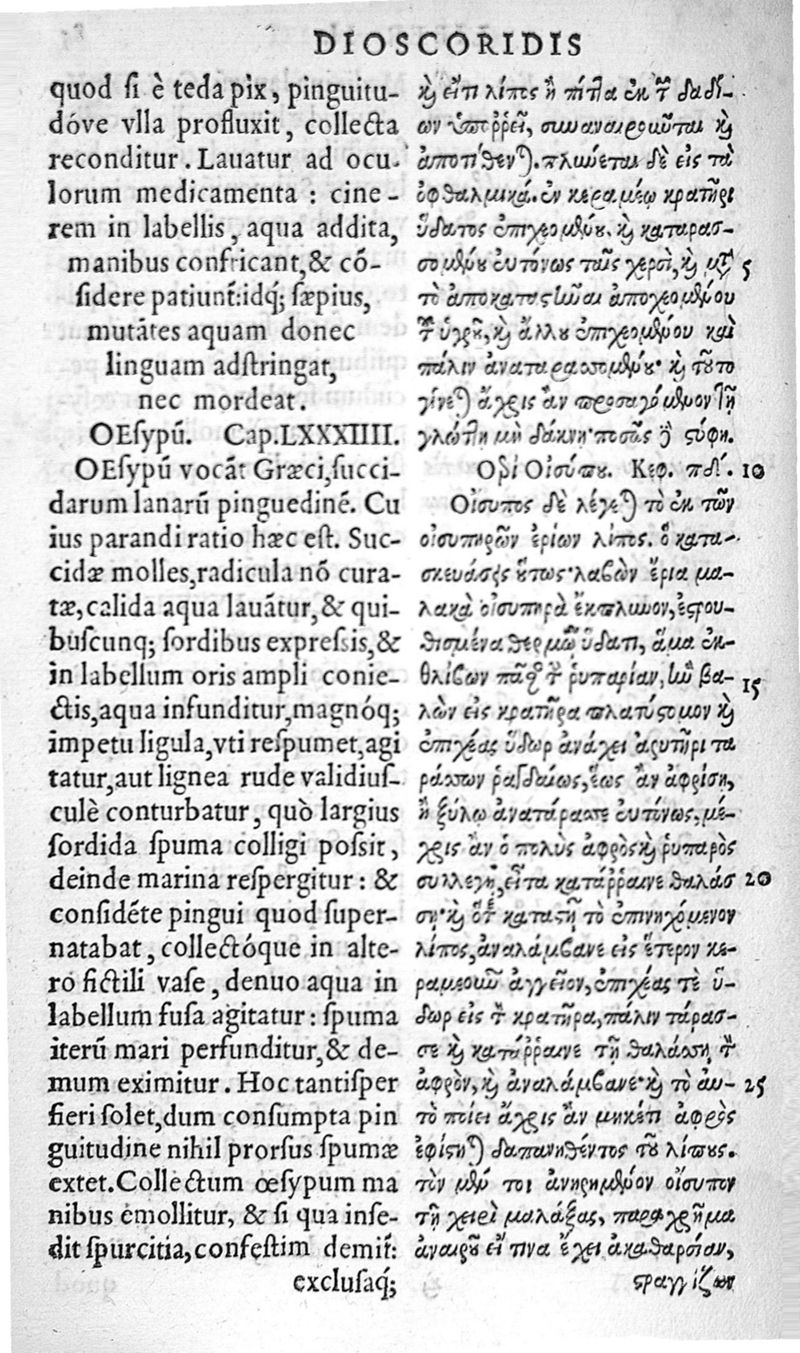 DIOSCORIDIS
quod si è teda pix, pinguitu-
dóve vlla profluxit, collecta
reconditur. Lauatur ad ocu-
lorum medicamenta : cine-
rem in labellis, aqua addita,
manibus confricant, & cō-
sidere patiunt: idq; sæpius,
mutātes aquam donec
linguam adstringat,
nec mordeat.
OEsypū. Cap. LXXXIIII.
OEsypū vocāt Græci, succi-
darum lanarū pinguedinē. Cu
ius parandi ratio hæc est. Suc-
cidæ molles, radicula nō cura-
tæ, calida aqua lauātur, & qui-
buscunq; sordibus expressis, &
in labellum oris ampli conie-
ctis, aqua infunditur, magnóq;
impetu ligula, vti respumet, agi
tatur, aut lignea rude validius-
culè conturbatur, quò largius
sordida spuma colligi possit,
deinde marina respergitur : &
considēte pingui quod super-
natabat, collectóque in alte-
ro fictili vase, denuo aqua in
labellum fusa agitatur : spuma
iterū mari perfunditur, & de-
mum eximitur. Hoc tantisper
fieri solet, dum consumpta pin
guitudine nihil prorsus spumæ
extet. Collectum œsypum ma
nibus emollitur, & si qua inse-
dit spurcitia, confestim demit:
exclusaq;
ϗ εἴτι λίπος ἢ πίτλα ἐκ τ δαδί-
ων ὑπορρεῖ, συναναιροῦται ϗ
ἀποτίθεν). πλύνεται δὲ εἰς τὰ
ὀφθαλμικά. ἐν κεραμέῳ κρατῆρι
ὕδατος ἐπιχεομένου, ϗ καταρασ-
σομένου εὐτόνως ταῖς χερσὶ, ϗ μτ 5
τὸ ἀποκαταστῆναι ἀποχεομένου
τ ὑγροῦ, ϗ ἄλλου ἐπιχεομένου καὶ
πάλιν ἀναταρασσομένου· ϗ τοῦτο
γίνε) ἄχρις ἂν προσαγόμενον τῇ
γλώττῃ μὴ δάκνῃ ποσῶς ἢ στύφῃ.
Περὶ Οἰσύπου. Κεφ. πδ΄. 10
Οἴσυπος δὲ λέγε) τὸ ἐκ τῶν
οἰσυπηρῶν ἐρίων λίπος. ὃ κατα-
σκευάσεις οὕτως· λαβὼν ἔρια μα-
λακὰ οἰσυπηρὰ ἔκπλυνον, ἐστρου-
θισμένα θερμῷ ὕδατι, ἅμα ἐκ-
θλίβων πᾶσαν τ ῥυπαρίαν, ἣν βα- 15
λὼν εἰς κρατῆρα πλατύστομον ϗ
ἐπιχέας ὕδωρ ἀνάχει ἀρυτῆρι τα
ράσσων ῥαγδαίως, ἕως ἂν ἀφρίσῃ,
ἢ ξύλῳ ἀνατάρασσε εὐτόνως, μέ-
χρις ἂν ὁ πολὺς ἀφρὸς ϗ ῥυπαρὸς
συλλεγῇ, εἶτα κατάρραινε θαλάσ 20
σῃ· ϗ ὅτ καταστῇ τὸ ἐπινηχόμενον
λίπος, ἀναλάμβανε εἰς ἕτερον κε-
ραμεοῦν ἀγγεῖον, ἐπιχέας τὲ ὕ-
δωρ εἰς τ κρατῆρα, πάλιν τάρασ-
σε ϗ κατάρραινε τῇ θαλάσσῃ τ
ἀφρὸν, ϗ ἀναλάμβανε· ϗ τὸ αὐ- 25
τὸ ποίει ἄχρις ἂν μηκέτι ἀφρὸς
ἐφίστη) δαπανηθέντος τοῦ λίπους.
τὸν μέν τοι ἀνῃρημένον οἴσυπον
τῇ χειρὶ μαλάξας, παραχρῆμα
ἀναιροῦ εἴ τινα ἔχει ἀκαθαρσίαν,
στραγγίζων